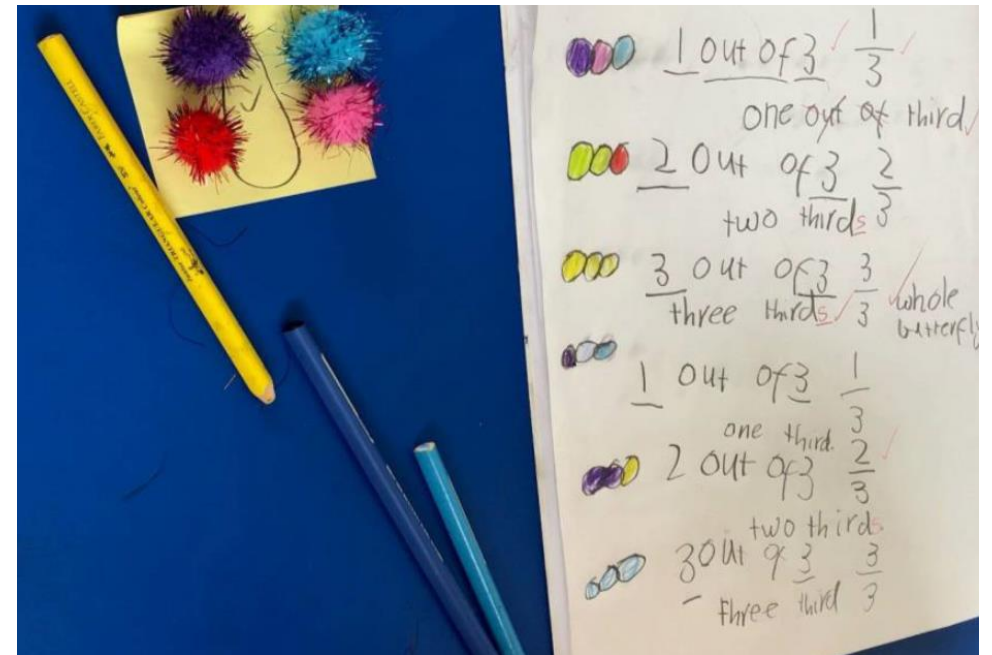 1 out of 3 1/3
one out of third
2 out of 3 2/3
two thirds
3 out of 3 3/3 whole
three thirds butterfly
1 out of 3 1/3
one third.
2 out of 3 2/3
two thirds
3 out of 3 3/3
three third